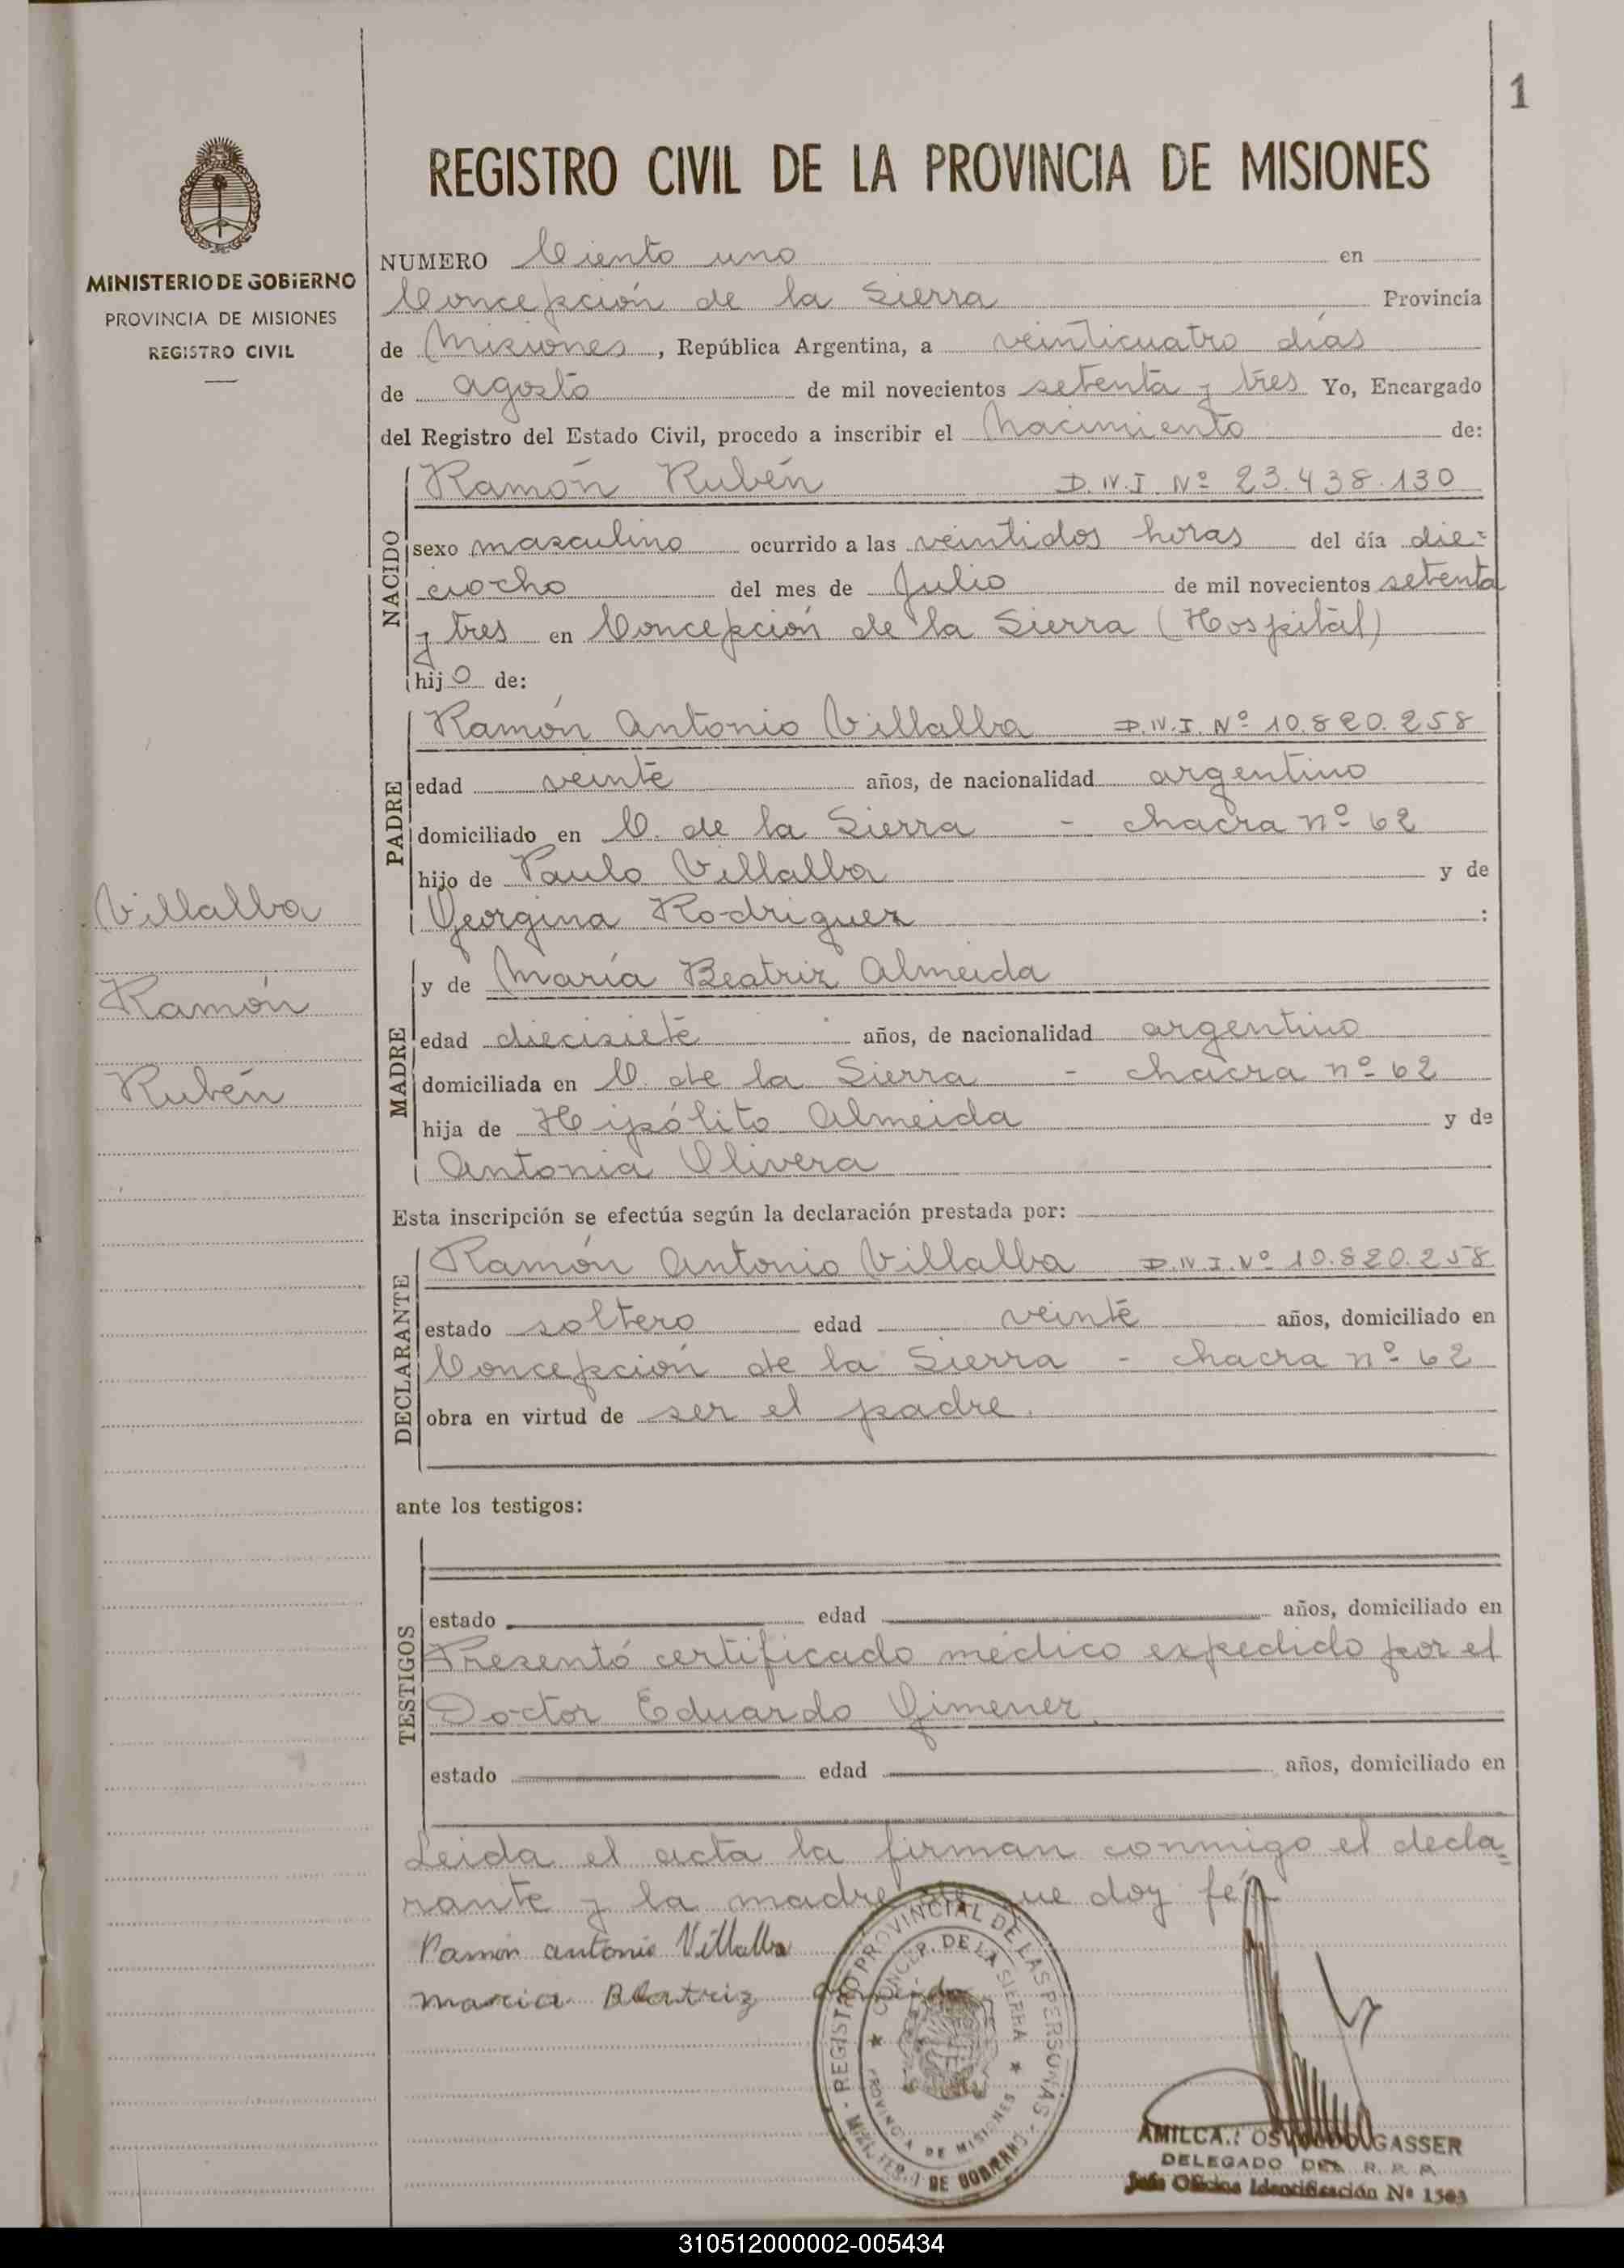 1
REGISTRO CIVIL DE LA PROVINCIA DE MISIONES
MINISTERIO DE GOBIERNO
PROVINCIA DE MISIONES
REGISTRO CIVIL
NUMERO Ciento uno en
Concepción de la Sierra Provincia
de Misiones, República Argentina, a veinticuatro días
de agosto de mil novecientos setenta y tres Yo, Encargado
del Registro del Estado Civil, procedo a inscribir el Nacimiento de:
NACIDO
Ramón Rubén D.N.I Nº 23.438.130
sexo masculino ocurrido a las veintidos horas del día die=
ciocho del mes de Julio de mil novecientos setenta
y tres en Concepción de la Sierra (Hospital)
hijo de:
PADRE
Ramón Antonio Villalba D.N.I. Nº 10.820.258
edad veinte años, de nacionalidad argentino
domiciliado en C. de la Sierra - chacra nº 62
hijo de Paulo Villalba y de
Georgina Rodriguez :
MADRE
y de María Beatriz Almeida
edad diecisiete años, de nacionalidad argentino
domiciliada en C. de la Sierra - chacra nº 62
hija de Hipólito Almeida y de
Antonia Olivera
Villalba
Ramón
Rubén
Esta inscripción se efectúa según la declaración prestada por:
DECLARANTE
Ramón Antonio Villalba D.N.I. Nº 10.820.258
estado soltero edad veinte años, domiciliado en
Concepción de la Sierra - chacra nº 62
obra en virtud de ser el padre.
ante los testigos:
TESTIGOS
estado edad años, domiciliado en
Presentó certificado médico expedido por el
Doctor Eduardo Gimenez.
estado edad años, domiciliado en
Leida el acta la firman conmigo el decla=
rante y la madre de que doy fé
Ramón antonio Villalba
maria Beatriz Almeida
REGISTRO PROVINCIAL DE LAS PERSONAS
MINISTERIO DE GOBIERNO
CONCEP. DE LA SIERRA
PROVINCIA DE MISIONES
AMILCAR OSVALDO GASSER
DELEGADO DEL R. P. P.
Jefe Oficina Identificación Nº 1503
310512000002-005434